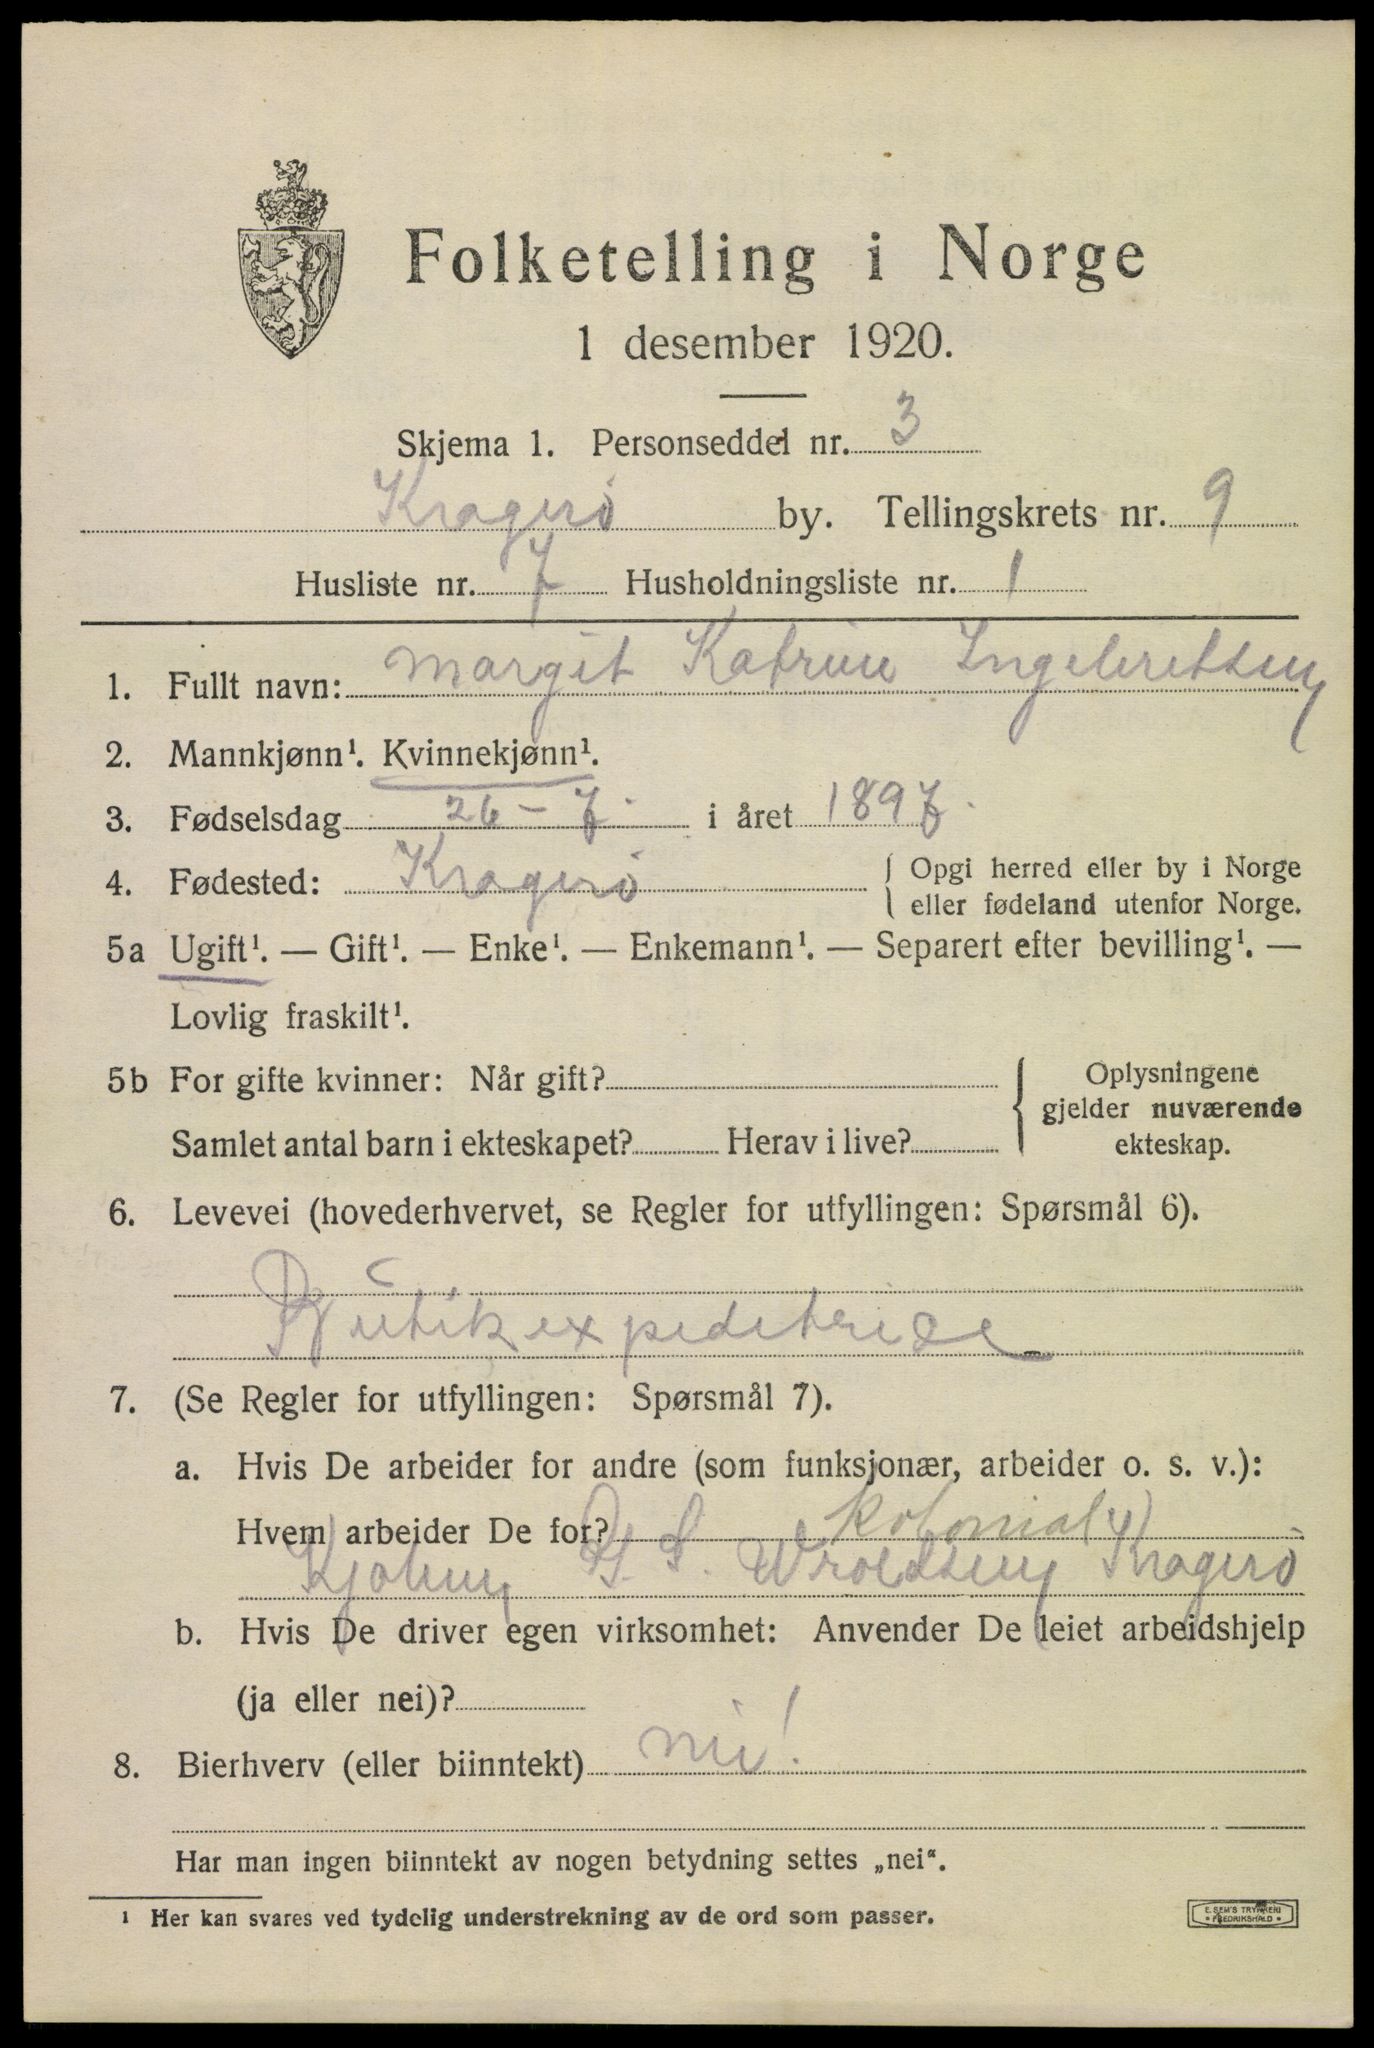 Folketelling i Norge
1 desember 1920.
Skjema 1. Personseddel nr. 3
Kragerø by. Tellingskrets nr. 9
Husliste nr. 7 Husholdningsliste nr. 1
1. Fullt navn: Margit Katrine Ingebretsen
2. Mannkjønn¹. Kvinnekjønn¹.
3. Fødselsdag 26 - 7. i året 1897.
4. Fødested: Kragerø { Opgi herred eller by i Norge
eller fødeland utenfor Norge.
5a Ugift¹. — Gift¹. — Enke¹. — Enkemann¹. — Separert efter bevilling¹. —
Lovlig fraskilt¹.
5b For gifte kvinner: Når gift? { Oplysningene
gjelder nuværende
Samlet antal barn i ekteskapet? Herav i live? ekteskap.
6. Levevei (hovederhvervet, se Regler for utfyllingen: Spørsmål 6).
Butikexpeditrice
7. (Se Regler for utfyllingen: Spørsmål 7).
a. Hvis De arbeider for andre (som funksjonær, arbeider o. s. v.):
Hvem arbeider De for? kolonial
Kjøbm. S. Wroldsen Kragerø
b. Hvis De driver egen virksomhet: Anvender De leiet arbeidshjelp
(ja eller nei)?
8. Bierhverv (eller biinntekt) nei!
Har man ingen biinntekt av nogen betydning settes „nei“.
¹ Her kan svares ved tydelig understrekning av de ord som passer.
E. SEM'S TRYKKERI
• FREDRIKSHALD •